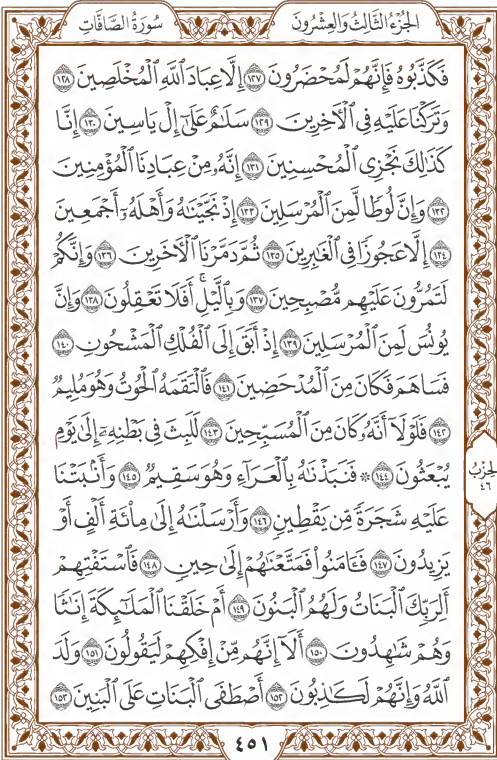 الجُزْءُ الثَّالِثُ وَالعِشْرُونَ
سُورَةُ الصَّافَّاتِ
فَكَذَّبُوهُ فَإِنَّهُمْ لَمُحْضَرُونَ ١٢٧ إِلَّا عِبَادَ ٱللَّهِ ٱلْمُخْلَصِينَ ١٢٨
وَتَرَكْنَا عَلَيْهِ فِي ٱلْأٓخِرِينَ ١٢٩ سَلَٰمٌ عَلَىٰٓ إِلْ يَاسِينَ ١٣٠ إِنَّا
كَذَٰلِكَ نَجْزِي ٱلْمُحْسِنِينَ ١٣١ إِنَّهُۥ مِنْ عِبَادِنَا ٱلْمُؤْمِنِينَ
١٣٢ وَإِنَّ لُوطًا لَّمِنَ ٱلْمُرْسَلِينَ ١٣٣ إِذْ نَجَّيْنَٰهُ وَأَهْلَهُۥٓ أَجْمَعِينَ
١٣٤ إِلَّا عَجُوزًا فِي ٱلْغَٰبِرِينَ ١٣٥ ثُمَّ دَمَّرْنَا ٱلْأٓخَرِينَ ١٣٦ وَإِنَّكُمْ
لَتَمُرُّونَ عَلَيْهِم مُّصْبِحِينَ ١٣٧ وَبِٱلَّيْلِۚ أَفَلَا تَعْقِلُونَ ١٣٨ وَإِنَّ
يُونُسَ لَمِنَ ٱلْمُرْسَلِينَ ١٣٩ إِذْ أَبَقَ إِلَى ٱلْفُلْكِ ٱلْمَشْحُونِ ١٤٠
فَسَاهَمَ فَكَانَ مِنَ ٱلْمُدْحَضِينَ ١٤١ فَٱلْتَقَمَهُ ٱلْحُوتُ وَهُوَ مُلِيمٌ
١٤٢ فَلَوْلَآ أَنَّهُۥ كَانَ مِنَ ٱلْمُسَبِّحِينَ ١٤٣ لَلَبِثَ فِي بَطْنِهِۦٓ إِلَىٰ يَوْمِ
يُبْعَثُونَ ١٤٤ ۞ فَنَبَذْنَٰهُ بِٱلْعَرَآءِ وَهُوَ سَقِيمٌ ١٤٥ وَأَنۢبَتْنَا
عَلَيْهِ شَجَرَةً مِّن يَقْطِينٍ ١٤٦ وَأَرْسَلْنَٰهُ إِلَىٰ مِا۟ئَةِ أَلْفٍ أَوْ
يَزِيدُونَ ١٤٧ فَـَٔامَنُوا۟ فَمَتَّعْنَٰهُمْ إِلَىٰ حِينٍ ١٤٨ فَٱسْتَفْتِهِمْ
أَلِرَبِّكَ ٱلْبَنَاتُ وَلَهُمُ ٱلْبَنُونَ ١٤٩ أَمْ خَلَقْنَا ٱلْمَلَٰٓئِكَةَ إِنَٰثًا
وَهُمْ شَٰهِدُونَ ١٥٠ أَلَآ إِنَّهُم مِّنْ إِفْكِهِمْ لَيَقُولُونَ ١٥١ وَلَدَ
ٱللَّهُ وَإِنَّهُمْ لَكَٰذِبُونَ ١٥٢ أَصْطَفَى ٱلْبَنَاتِ عَلَى ٱلْبَنِينَ ١٥٣
الحِزْبُ
٤٦
٤٥١